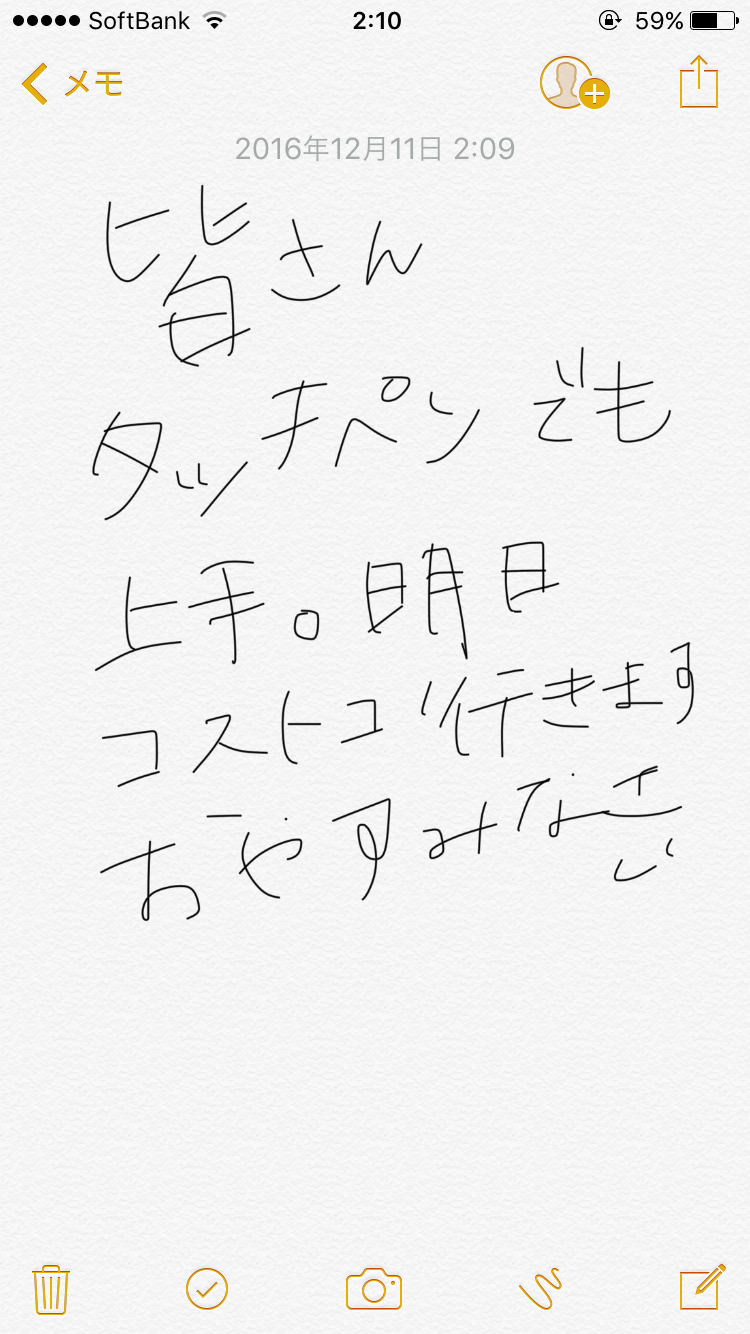 SoftBank 2:10 59%
メモ
2016年12月11日 2:09
皆さん
タッチペンでも
上手。明日
コストコ行きます
おやすみなさい